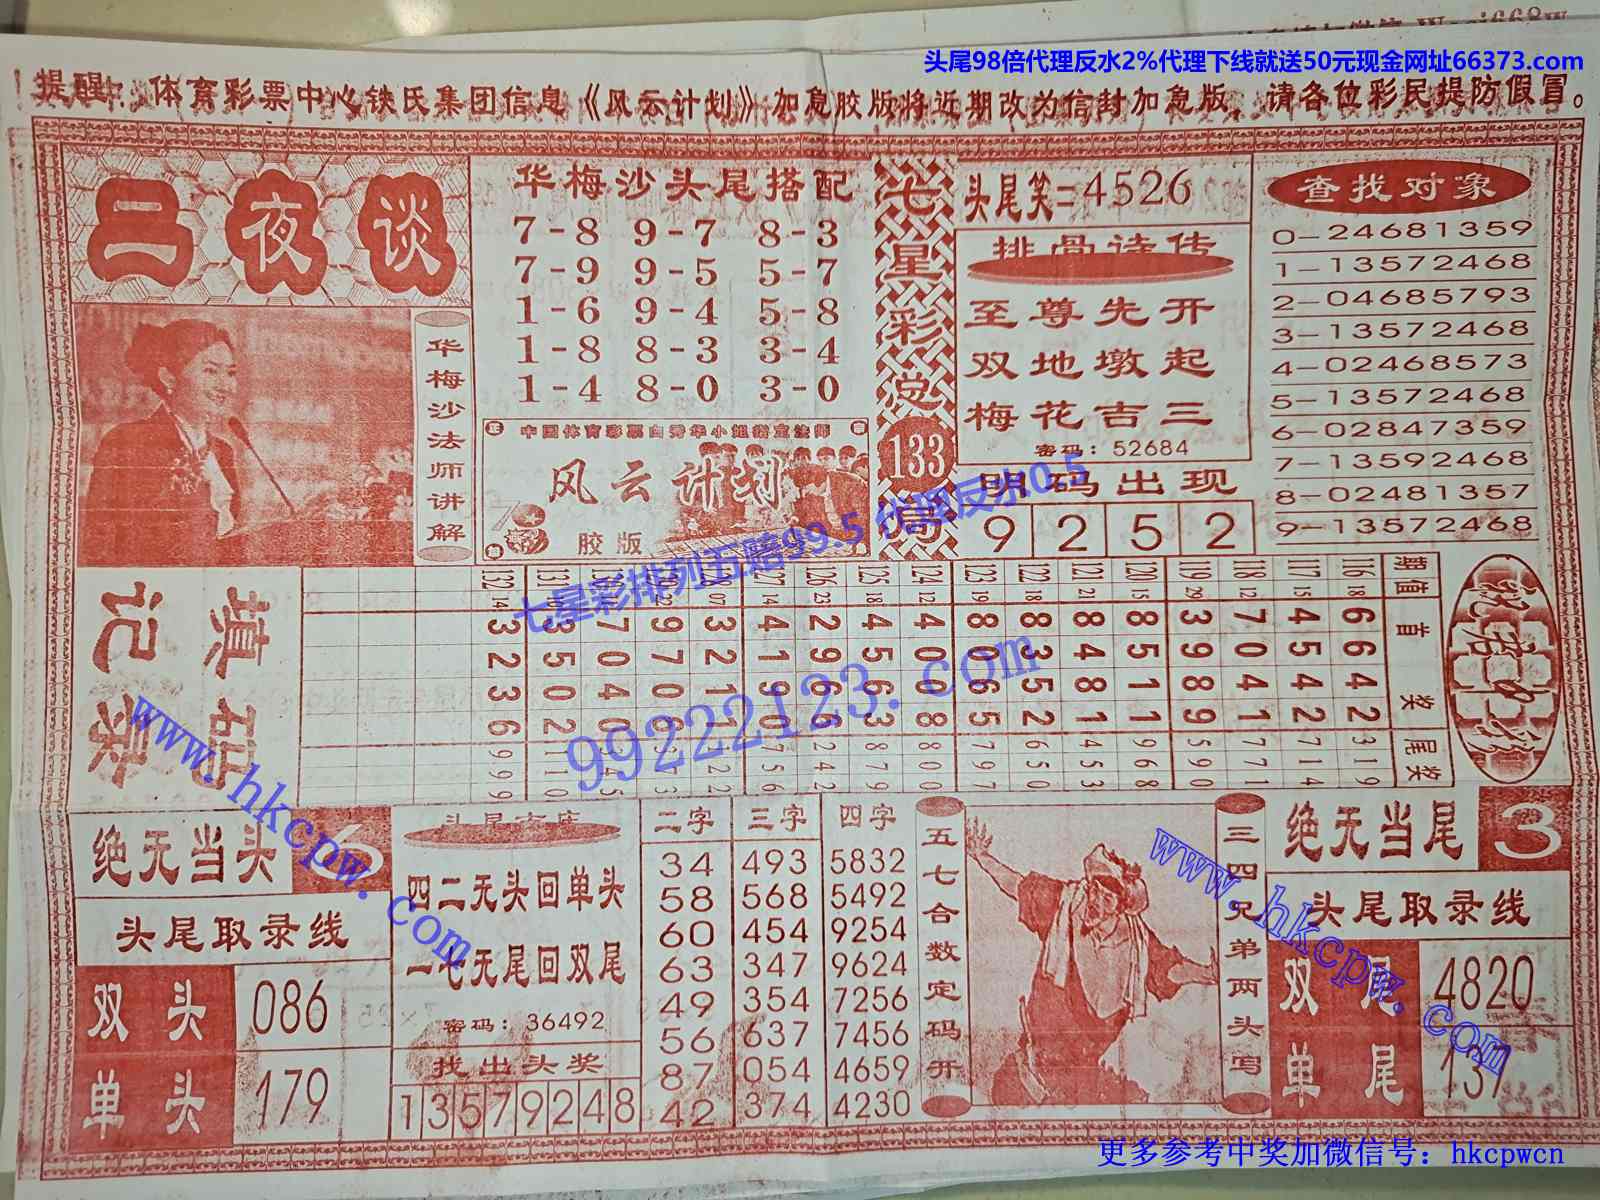 头尾98倍代理反水2%代理下线就送50元现金网址66373.com
提醒：体育彩票中心铁氏集团信息《风云计划》加急胶版将近期改为信封加急版，请各位彩民提防假冒。
二夜谈
华梅沙法师讲解
华梅沙头尾搭配
7-8 9-7 8-3
7-9 9-5 5-7
1-6 9-4 5-8
1-8 8-3 3-4
1-4 8-0 3-0
中国体育彩票白秀华小姐搭宣法师
风云计划
胶版
七星彩总133
头尾笑=4526
排骨诗传
至尊先开
双地墩起
梅花吉三
密码：52684
明码出现
9 2 5 2
查找对象
0-24681359
1-13572468
2-04685793
3-13572468
4-02468573
5-13572468
6-02847359
7-13592468
8-02481357
9-13572468
七星彩排列五赔99.5 代理反水0.5
99222123.com
www.hkcpw.com
www.hkcpw.com
填码记录
期 值 首奖 尾奖
116 18 6642 319
117 15 4542 714
118 12 7041 771
119 29 3989 590
120 15 8511 968
121 21 8481 453
122 18 8352 650
123 19 8065 797
124 12 4008 800
125 18 4563 879
126 23 2966 242
127 14 4190 756
132 14 3236 999
绝无当头 6
头尾取录线
双头 086
单头 179
四二无头回单头
一七无尾回双尾
密码：36492
找出头奖
1 3 5 7 9 2 4 8
二字 三字 四字
34 493 5832
58 568 5492
60 454 9254
63 347 9624
49 354 7256
56 637 7456
87 054 4659
42 374 4230
五七合数定码开
三四兄弟两头写
绝无当尾 3
头尾取录线
双尾 4820
单尾 137
更多参考中奖加微信号：hkcpwcn